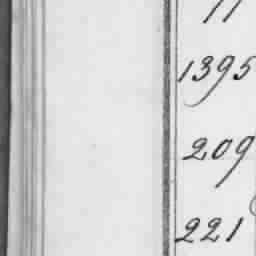 11
1395
209
221